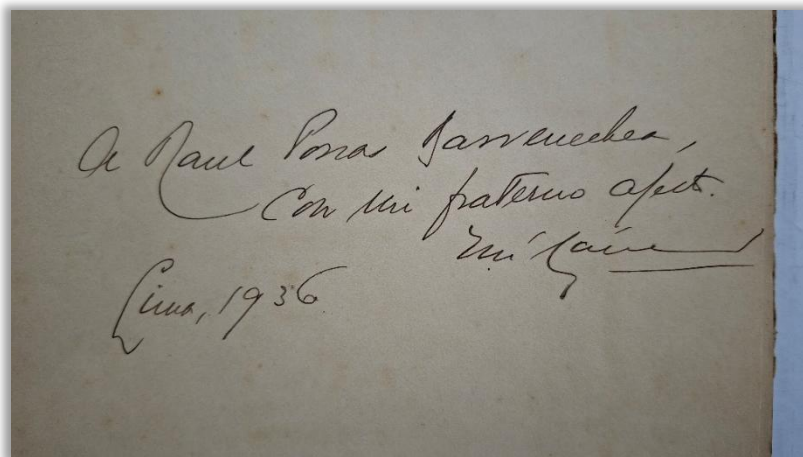 A Raul Porras Barrenechea,
Con mi fraterno afecto.
Lima, 1936